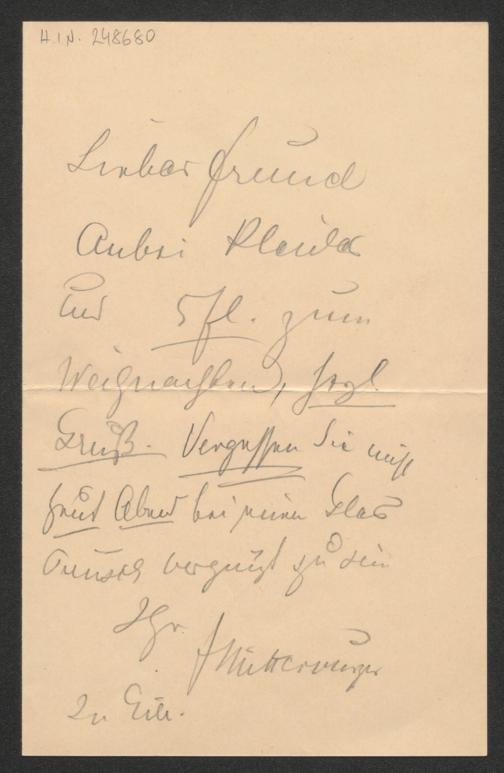 H.I.N. 248680
Lieber Freund
Anbei Kleider
und 5 fl. zum
Weihnachten, herzl.
Gruß. Vergessen Sie nicht
heut Abend bei einem Glas
Punsch vergnügt zu sein
Ihr
FMitterwurzer
In Eile.